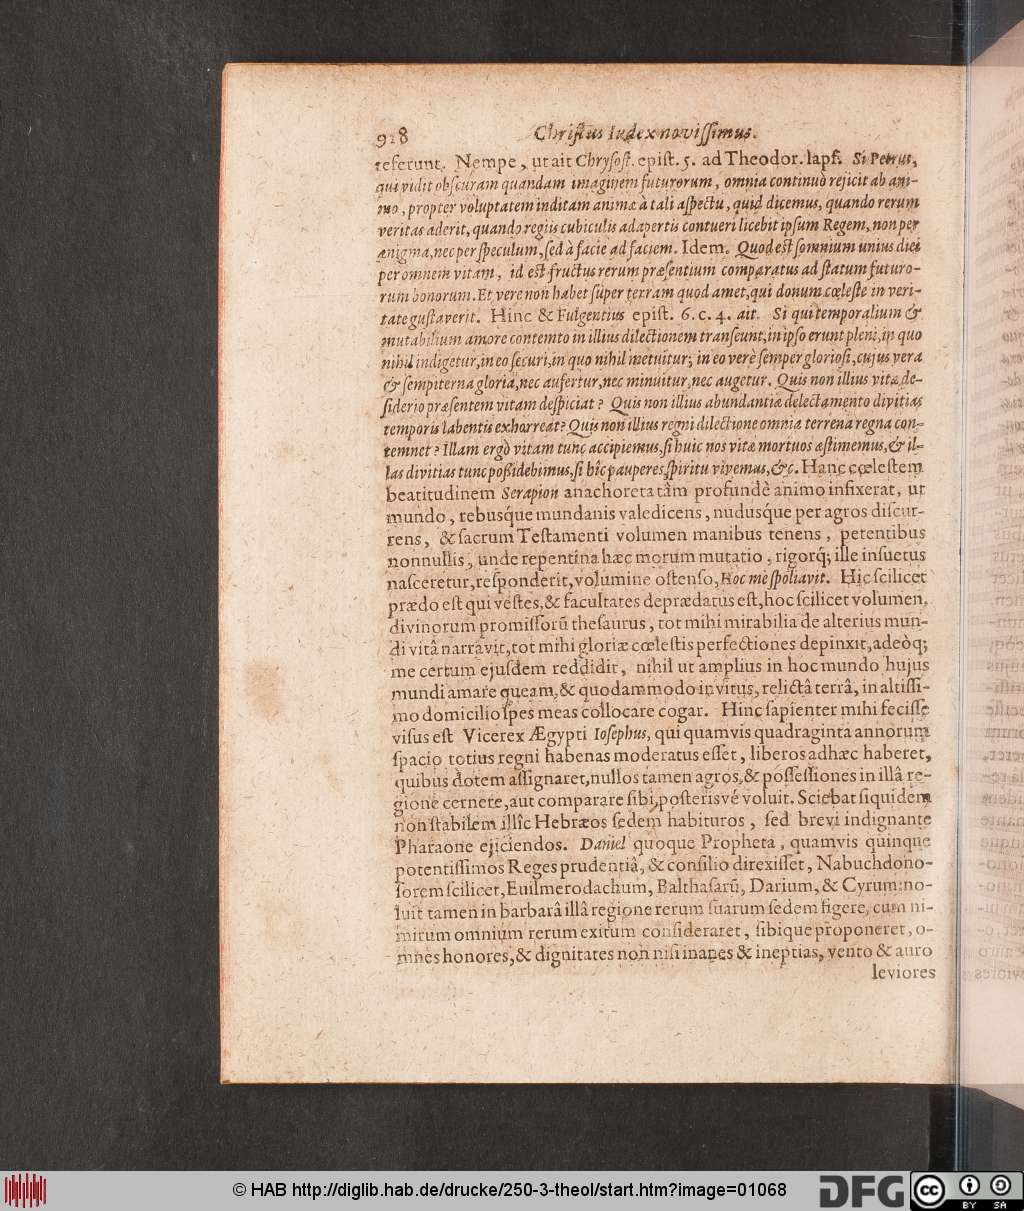 918 Christus Iudex novissimus.
referunt. Nempe, ut ait Chrysost. epist. 5. ad Theodor. laps. Si Petrus,
qui vidit obscuram quandam imaginem futurorum, omnia continuò rejicit ab ani-
mo, propter voluptatem inditam animæ à tali aspectu, quid dicemus, quando rerum
veritas aderit, quando regiis cubiculis adapertis contueri licebit ipsum Regem, non per
ænigma, nec per speculum, sed à facie ad faciem. Idem. Quod est somnium unius diei
per omnem vitam, id est fructus rerum præsentium comparatus ad statum futuro-
rum bonorum. Et vere non habet super terram quod amet, qui donum cœleste in veri-
tate gustaverit. Hinc & Fulgentius epist. 6. c. 4. ait. Si qui temporalium &
mutabilium amore contemto in illius dilectionem transeunt, in ipso erunt pleni, in quo
nihil indigetur, in eo securi, in quo nihil metuitur; in eo verè semper gloriosi, cujus vera
& sempiterna gloria, nec aufertur, nec minuitur, nec augetur. Quis non illius vitæ de-
siderio præsentem vitam despiciat? Quis non illius abundantiæ delectamento divitias
temporis labentis exhorreat? Quis non illius regni dilectione omnia terrena regna con-
temnet? Illam ergò vitam tunc accipiemus, si huic nos vitæ mortuos æstimemus, & il-
las divitias tunc possidebimus, si hîc pauperes spiritu vivemus, &c. Hanc cœlestem
beatitudinem Serapion anachoreta tâm profundè animo infixerat, ut
mundo, rebusque mundanis valedicens, nudusque per agros discur-
rens, & sacrum Testamenti volumen manibus tenens, petentibus
nonnullis, unde repentina hæc morum mutatio, rigorq́; ille insuetus
nasceretur, responderit, volumine ostenso, Hoc me spoliavit. Hic scilicet
prædo est qui vestes, & facultates deprædatus est, hoc scilicet volumen,
divinorum promissorũ thesaurus, tot mihi mirabilia de alterius mun-
di vitâ narravit, tot mihi gloriæ cœlestis perfectiones depinxit, adeòq;
me certum ejusdem reddidit, nihil ut amplius in hoc mundo hujus
mundi amare queam, & quodammodo invitus, relictâ terrâ, in altissi-
mo domicilio spes meas collocare cogar. Hinc sapienter mihi fecisse
visus est Vicerex Ægypti Iosephus, qui quamvis quadraginta annorum
spacio totius regni habenas moderatus esset, liberos adhæc haberet,
quibus dotem assignaret, nullos tamen agros, & possessiones in illâ re-
gione cernere, aut comparare sibi, posterisvé voluit. Sciebat siquidem
non stabilem illîc Hebræos sedem habituros, sed brevi indignante
Pharaone ejiciendos. Daniel quoque Propheta, quamvis quinque
potentissimos Reges prudentiâ, & consilio direxisset, Nabuchdono-
sorem scilicet, Euilmerodachum, Balthasarũ, Darium, & Cyrum: no-
luit tamen in barbarâ illâ regione rerum suarum sedem figere, cum ni-
mirum omnium rerum exitum consideraret, sibique proponeret, o-
mnes honores, & dignitates non nisi inanes & ineptias, vento & auro
leviores
© HAB http://diglib.hab.de/drucke/250-3-theol/start.htm?image=01068
DFG
cc BY SA